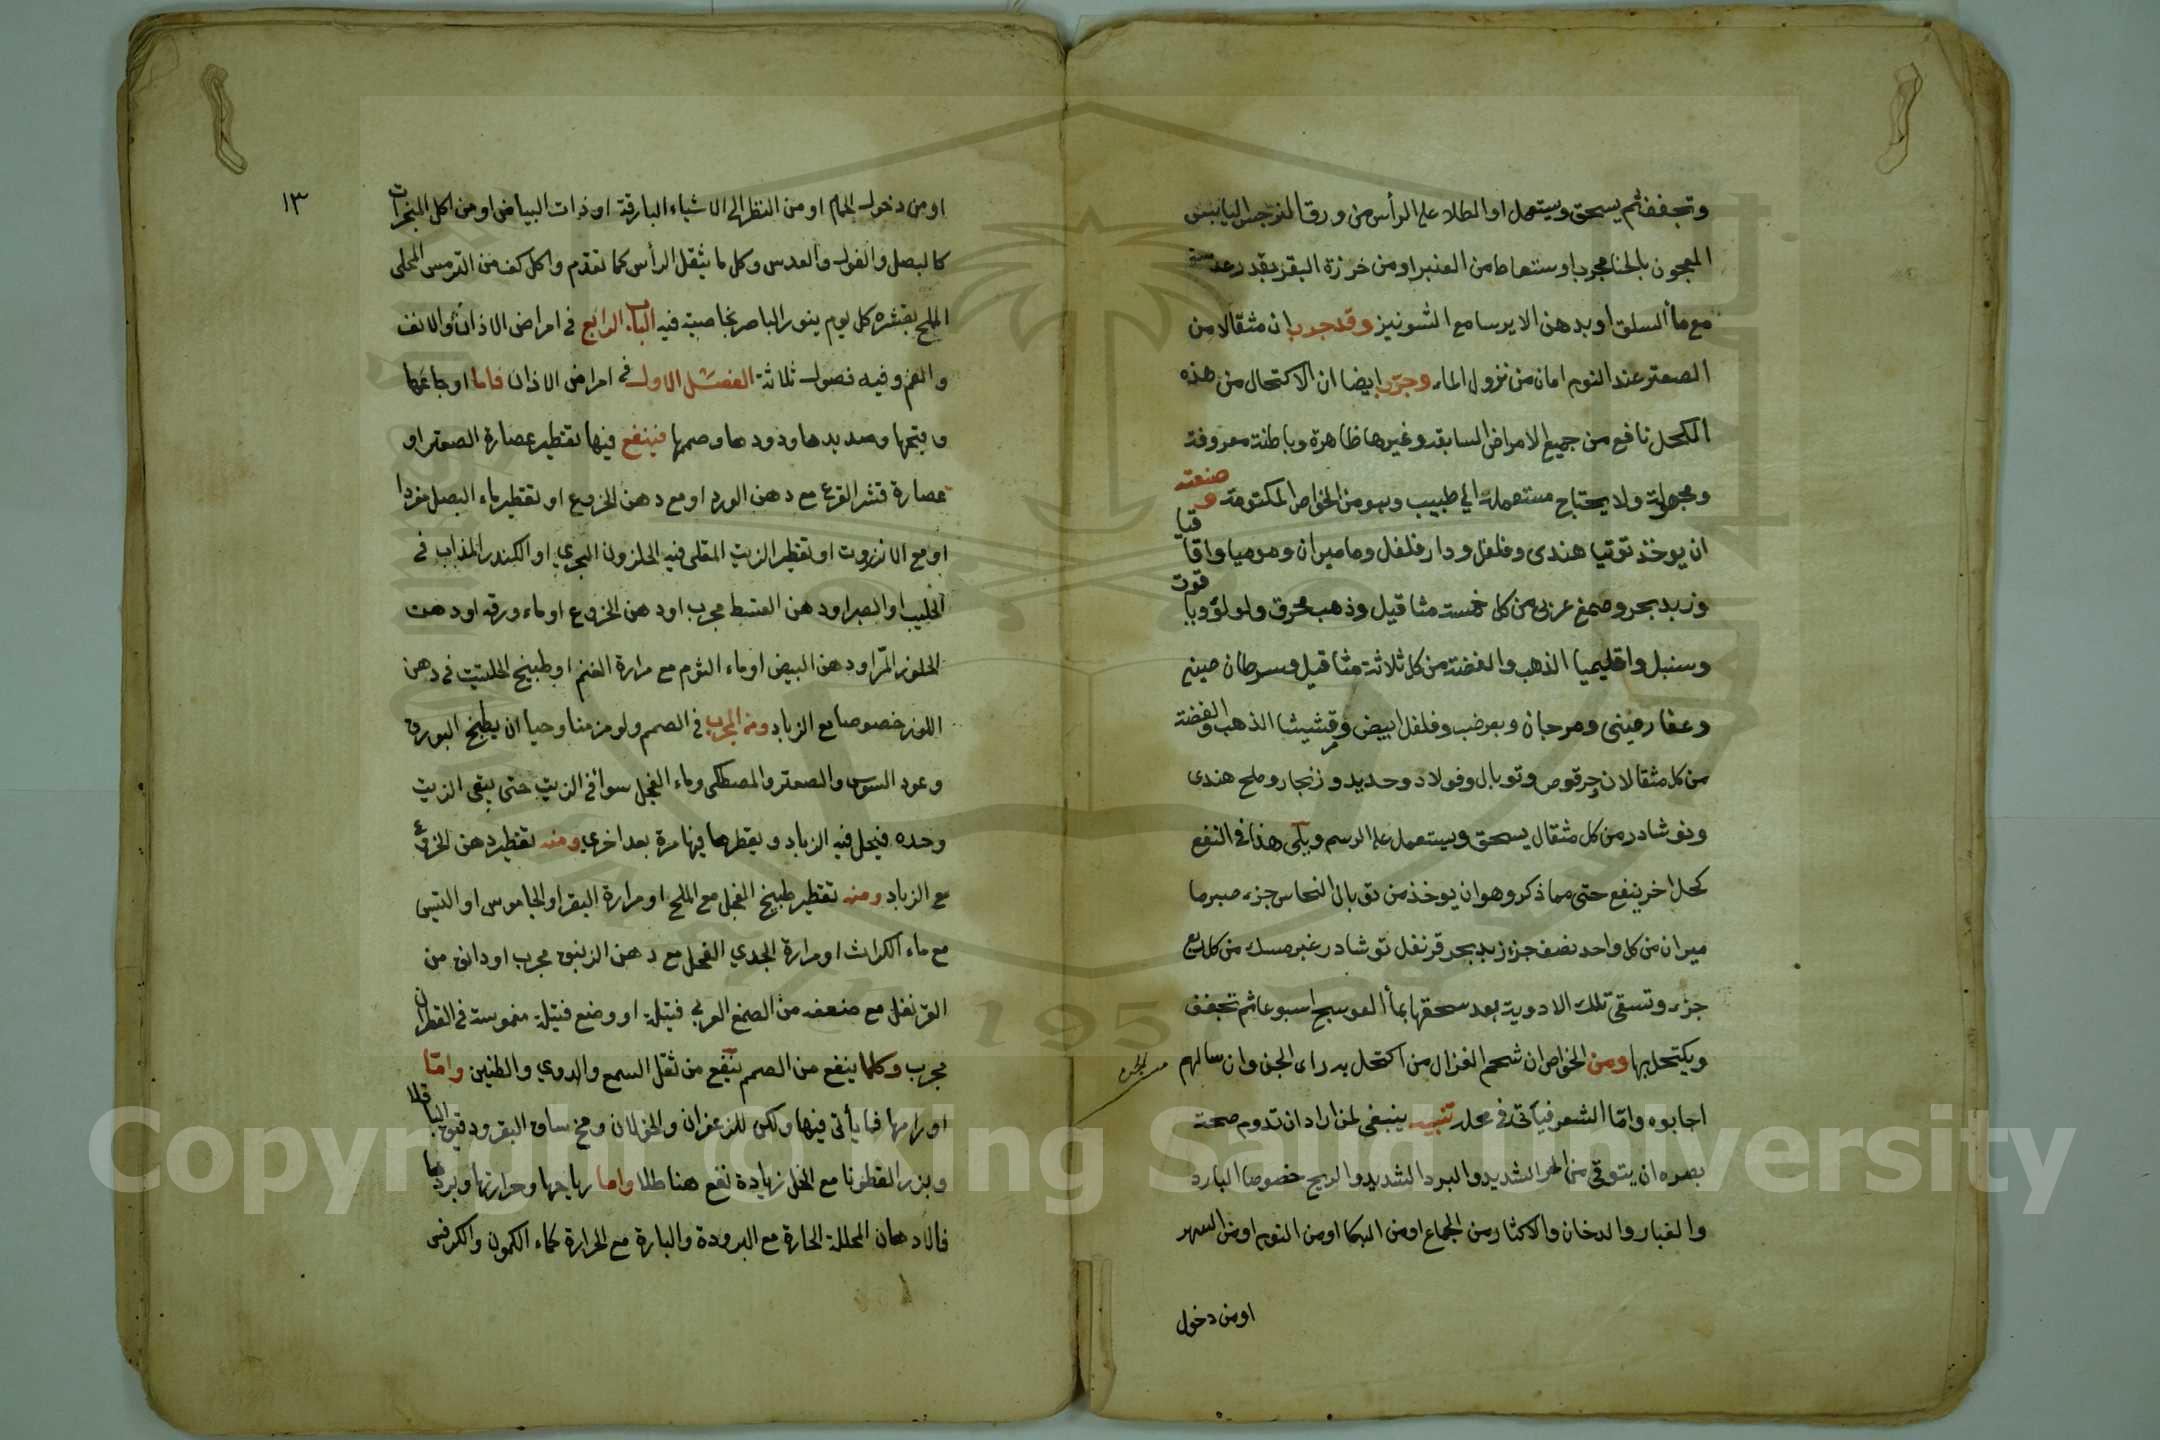 وتجفف ثم يسحق ويستعمل او الطلا على الرأس من ورق النرجس اليابس
المعجون بالحنا مجرب او ستعاط من العنبر او من خرزة البقر بقدر عدسة
مع مأ السلق او بدهن الايرسا مع الشونيز وقد جرب ان مثقالا من
الصعتر عند النوم امان من نزول الماء وجرّب ايضا ان الاكتحال من هذه
الكحل نافع من جميع الامراض السابقه وغيرها ظاهرة وباطنة معروفة
ومجهولة ولا يحتاج مستعمله الي طبيب وهو من الخواص المكتومة وصنعته
ان يوخذ توتيا هندى وفلفل ودار فلفل وماميران ومومياواقاقيا
وزبد بحر وصمغ عربى من كل خمسة مثاقيل وذهب محرق ولولؤ وياقوت
وسنبل واقليميا الذهب والفضة من كل ثلاثة مثاقيل وسرطان صينى
وعقار صينى ومرجان وبعر ضب وفلفل ابيض ومرقشيشا الذهب والفضة
من كل مثقالان جرقوص وتوبال وفولاد وحديد وزنجار وملح هندى
ونوشادر من كل مثقال يسحق ويستعمل على الرسم ويلى هذا فى النفع
كحل اخر ينفع حتى مما ذكر وهو ان يوخذ من توبال النحاس جزء صبر ما
ميران من كل واحد نصف جزء زبد بحر قرنفل نوشادر عنبر مسك من كل ربع
جزء وتسقى تلك الادوية بعد سحقها بمأ العوسج اسبوعا ثم تجفف
ويكتحل بها ومن الخواص ان شحم الغزال من اكتحل به رءاى الجن وان سالهم
اجابوه وامّا الشعر فيأتى فى محله تنبيه ينبغى لمن اراد ان تدوم صحة
بصره ان يتوقى من الحر الشديد والبرد الشديد والريح خصوصا البارد
والغبار والدخان والاكثار من الجماع او من البكا او من النوم او من السهر
او من دخول
١٣
او من دخول الحمام او من النظر الى الاشياء البارقة او ذات البياض او من اكل المبخرات
كالبصل والفول والعدس وكل ما يثقل الرأس كما تقدم واكل كف من الترمس المحلى
الملح بقشره كل يوم ينور الباصر بخاصية فيه الباب الرابع فى امراض الاذان والانف
والفم وفيه فصول ثلاثة الفصل الاول فى امراض الاذان فاما اوجاعها
وقيحها وصديدها ودودها وصممها فينفع فيها تقطير عصارة الصعتر او
عصارة قشر القرع مع دهن الورد او مع دهن الخروع او تقطير ماء البصل مفردا
او مع الانزروت او تقطير الزيت المقلى فيه الحلزون البحري او الكندر المذاب فى
الحليب او الصبر او دهن القسط مجرب او دهن الخروع او ماء ورقه او دهن
اللوز المرّ او دهن البيض او ماء الثوم مع مرارة الغنم او طبيخ الحلتيت فى دهن
اللوز خصوصا مع الزباد ومن المجرب فى الصمم ولو مزمنا وحيا ان يطبخ البورق
وعود السوس والصعتر والمصطكى وماء الفجل سوأ فى الزيت حتى يبقى الزيت
وحده فيحل فيه الزباد ويقطرها فيها مرة بعد اخري ومنه تقطير دهن الخروع
مع الزباد ومنه تقطير طبيخ الفجل مع الملح او مرارة البقر او الجاموس او التيس
مع ماء الكراث او مرارة الجدي الفحل مع دهن الزنبق مجرب او دانق من
القرنفل مع ضعفه من الصمغ العربي فتيلة او وضع فتيلة مغموسة فى القطران
مجرب وكلما ينفع من الصمم ينفع من ثقل السمع والدوي والطنين وامّا
اورامها فما يأتى فيها ولكن للزعفران والخولان ومخ ساق البقر ودقيق الباقلا
وبزر القطونا مع الخل زيادة نفع هنا طلا واما رياحها وحرارتها وبردها
فالادهان المحللة الحارة مع البرودة والباردة مع الحرارة كماء الكمون والكرفس
Copyright © King Saud University
195